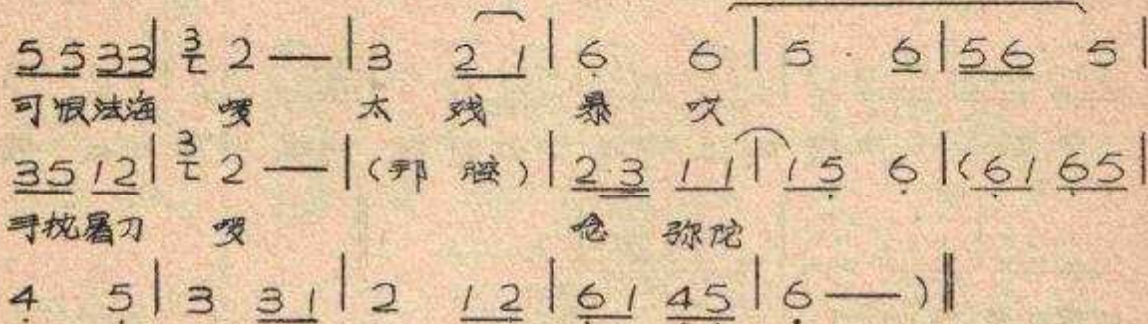 5 5 3 3 | 3 2 — | 3 2 1 | 6 6 | 5 · 6 | 5 6 5 |
可恨法海 嗳 太 残 暴 哎
3 5 1 2 | 3 2 — | (帮 腔) | 2 3 1 1 | 1 5 6 | (6 1 6 5 |
手执屠刀 嗳 念 弥陀
4 5 | 3 3 1 | 2 1 2 | 6 1 4 5 | 6 — ) ‖